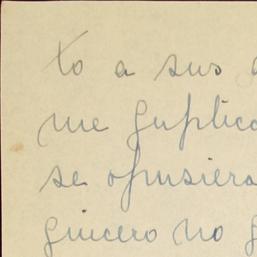 to a sus
me suplica
se opusiera
sincero no